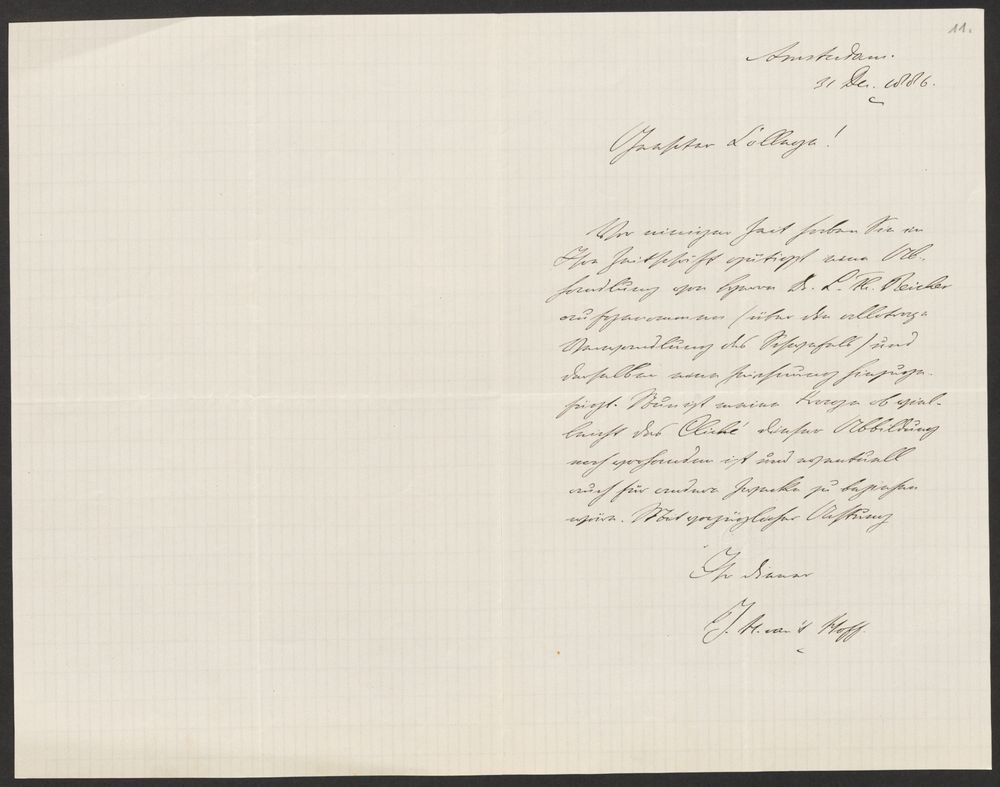 11.
Amsterdam.
31 Dec. 1886.
Geehrter College!
Vor einiger Zeit haben Sie in
Ihre Zeitschrift gütigst eine Ab-
handlung von Herrn Dr. L. Th. Reicher
aufgenommen (über die allotrope
Umwandlung des Schwefels) und
derselben eine Zeichnung hinzuge-
fügt. Nun ist meine Frage ob viel-
leicht das Cliché dieser Abbildung
noch vorhanden ist und eventuell
auch für andere Zwecke zu beziehen
wäre. Mit vorzüglicher Achtung
Ihr diener
J. H. van 't Hoff.